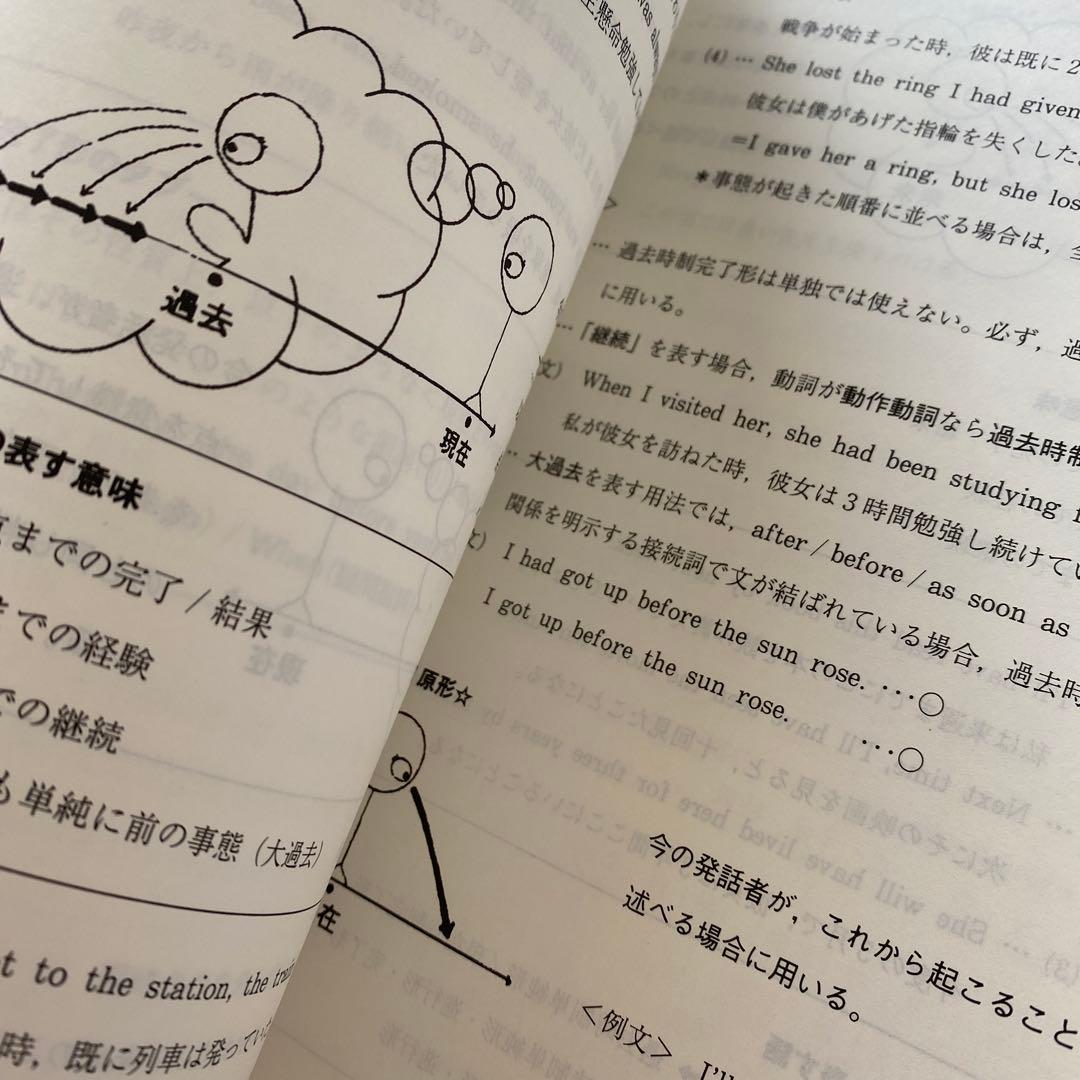 過去
現在
の表す意味
までの完了／結果
までの経験
での継続
も単純に前の事態（大過去）
to the station, the
時，既に列車は発って
懸命勉強して
戦争が始まった時，彼は既に2
(4) … She lost the ring I had given
彼女は僕があげた指輪を失くした
＝I gave her a ring, but she los
＊事態が起きた順番に並べる場合は，
… 過去時制完了形は単独では使えない。必ず，過
に用いる。
…「継続」を表す場合，動詞が動作動詞なら過去時制
文） When I visited her, she had been studying f
私が彼女を訪ねた時，彼女は3時間勉強し続けてい
… 大過去を表す用法では，after／before／as soon as
関係を明示する接続詞で文が結ばれている場合，過去時
文） I had got up before the sun rose. …○
I got up before the sun rose. …○
原形☆
在
今の発話者が，これから起こること
述べる場合に用いる。
＜例文＞ I'll